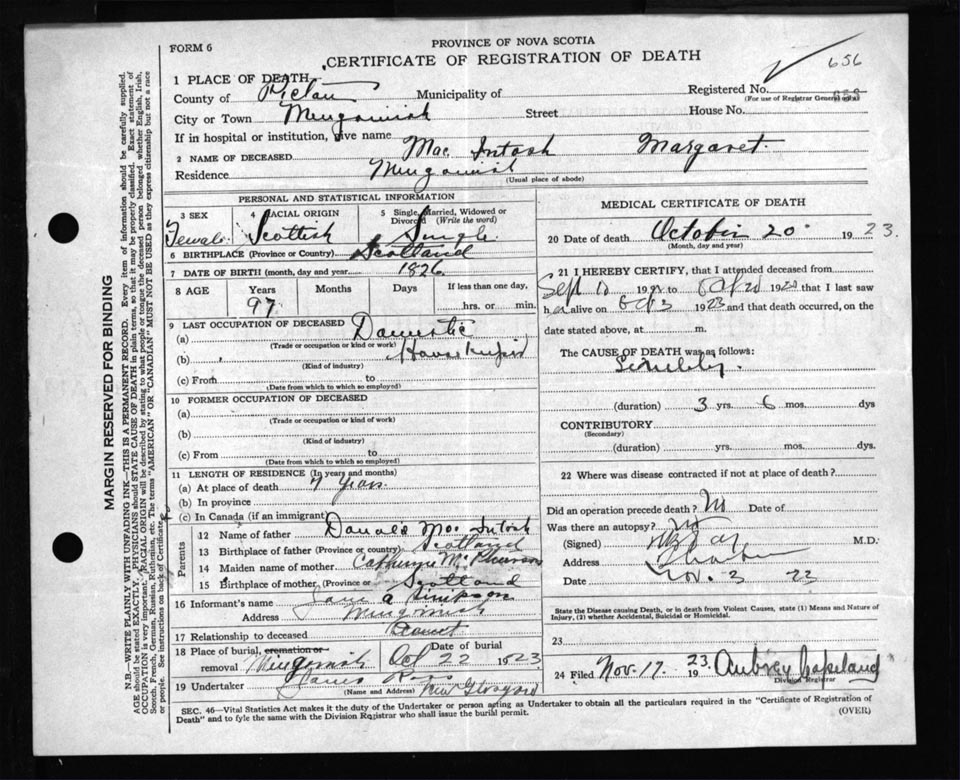 PROVINCE OF NOVA SCOTIA
FORM 6
CERTIFICATE OF REGISTRATION OF DEATH
656
1 PLACE OF DEATH
County of Pictou Municipality of Registered No.
(For use of Registrar General only)
City or Town Merigomish Street House No.
If in hospital or institution, give name
2 NAME OF DECEASED Mac Intosh Margaret
Residence Merigomish
(Usual place of abode)
PERSONAL AND STATISTICAL INFORMATION
3 SEX 4 RACIAL ORIGIN 5 Single, Married, Widowed or Divorced (Write the word)
Female Scottish Single
6 BIRTHPLACE (Province or Country) Scotland
7 DATE OF BIRTH (month, day and year) 1826
8 AGE Years Months Days If less than one day,
97 hrs. or min.
9 LAST OCCUPATION OF DECEASED
(a) Domestic
(Trade or occupation or kind or work)
(b) Housekeeper
(Kind of industry)
(c) From to
(Date from which to which so employed)
10 FORMER OCCUPATION OF DECEASED
(a)
(Trade or occupation or kind of work)
(b)
(Kind of industry)
(c) From to
(Date from which to which so employed)
11 LENGTH OF RESIDENCE (In years and months)
(a) At place of death 7 Years
(b) In province
(c) In Canada (if an immigrant)
Parents
12 Name of father Donald Mac Intosh
13 Birthplace of father (Province or country) Scotland
14 Maiden name of mother Catherine McPherson
15 Birthplace of mother (Province or Scotland
16 Informant's name Jane A Simpson
Address Merigomish
17 Relationship to deceased
18 Place of burial, cremation or removal Merigomish Date of burial Oct 22 1923
19 Undertaker James
(Name and Address) New Glasgow
MEDICAL CERTIFICATE OF DEATH
20 Date of death October 20 1923.
(Month, day and year)
21 I HEREBY CERTIFY, that I attended deceased from
Sept 10 19 to 19 that I last saw
h alive on Oct 3 1923 and that death occurred, on
date stated above, at m.
The CAUSE OF DEATH was as follows:
Senility.
(duration) 3 yrs. 6 mos. dys
CONTRIBUTORY
(Secondary)
(duration) yrs. mos. dys.
22 Where was disease contracted if not at place of death?
Did an operation precede death? No Date of
Was there an autopsy? No
(Signed) M.D.
Address
Date Nov. 3 23
State the Disease causing Death, or in death from Violent Causes, state (1) Means and Nature of
Injury, (2) whether Accidental, Suicidal or Homicidal.
23
24 Filed Nov. 17. 1923. Aubrey Copeland
Division Registrar
SEC. 46—Vital Statistics Act makes it the duty of the Undertaker or person acting as Undertaker to obtain all the particulars required in the "Certificate of Registration of
Death" and to fyle the same with the Division Registrar who shall issue the burial permit. (OVER)
MARGIN RESERVED FOR BINDING
N.B.—WRITE PLAINLY WITH UNFADING INK—THIS IS A PERMANENT RECORD. Every item of information should be carefully supplied.
AGE should be stated EXACTLY. PHYSICIANS should STATE CAUSE OF DEATH in plain terms, so that it may be properly classified. Exact statement of
OCCUPATION is very important. RACIAL ORIGIN will be described by stating to what people or tongue the deceased person belonged whether English, Irish,
Scotch, French, German, Russian, Ruthenian, etc. The terms "AMERICAN" OR "CANADIAN" MUST NOT BE USED as they express citizenship but not a race
or people. See instructions on back of Certificate.